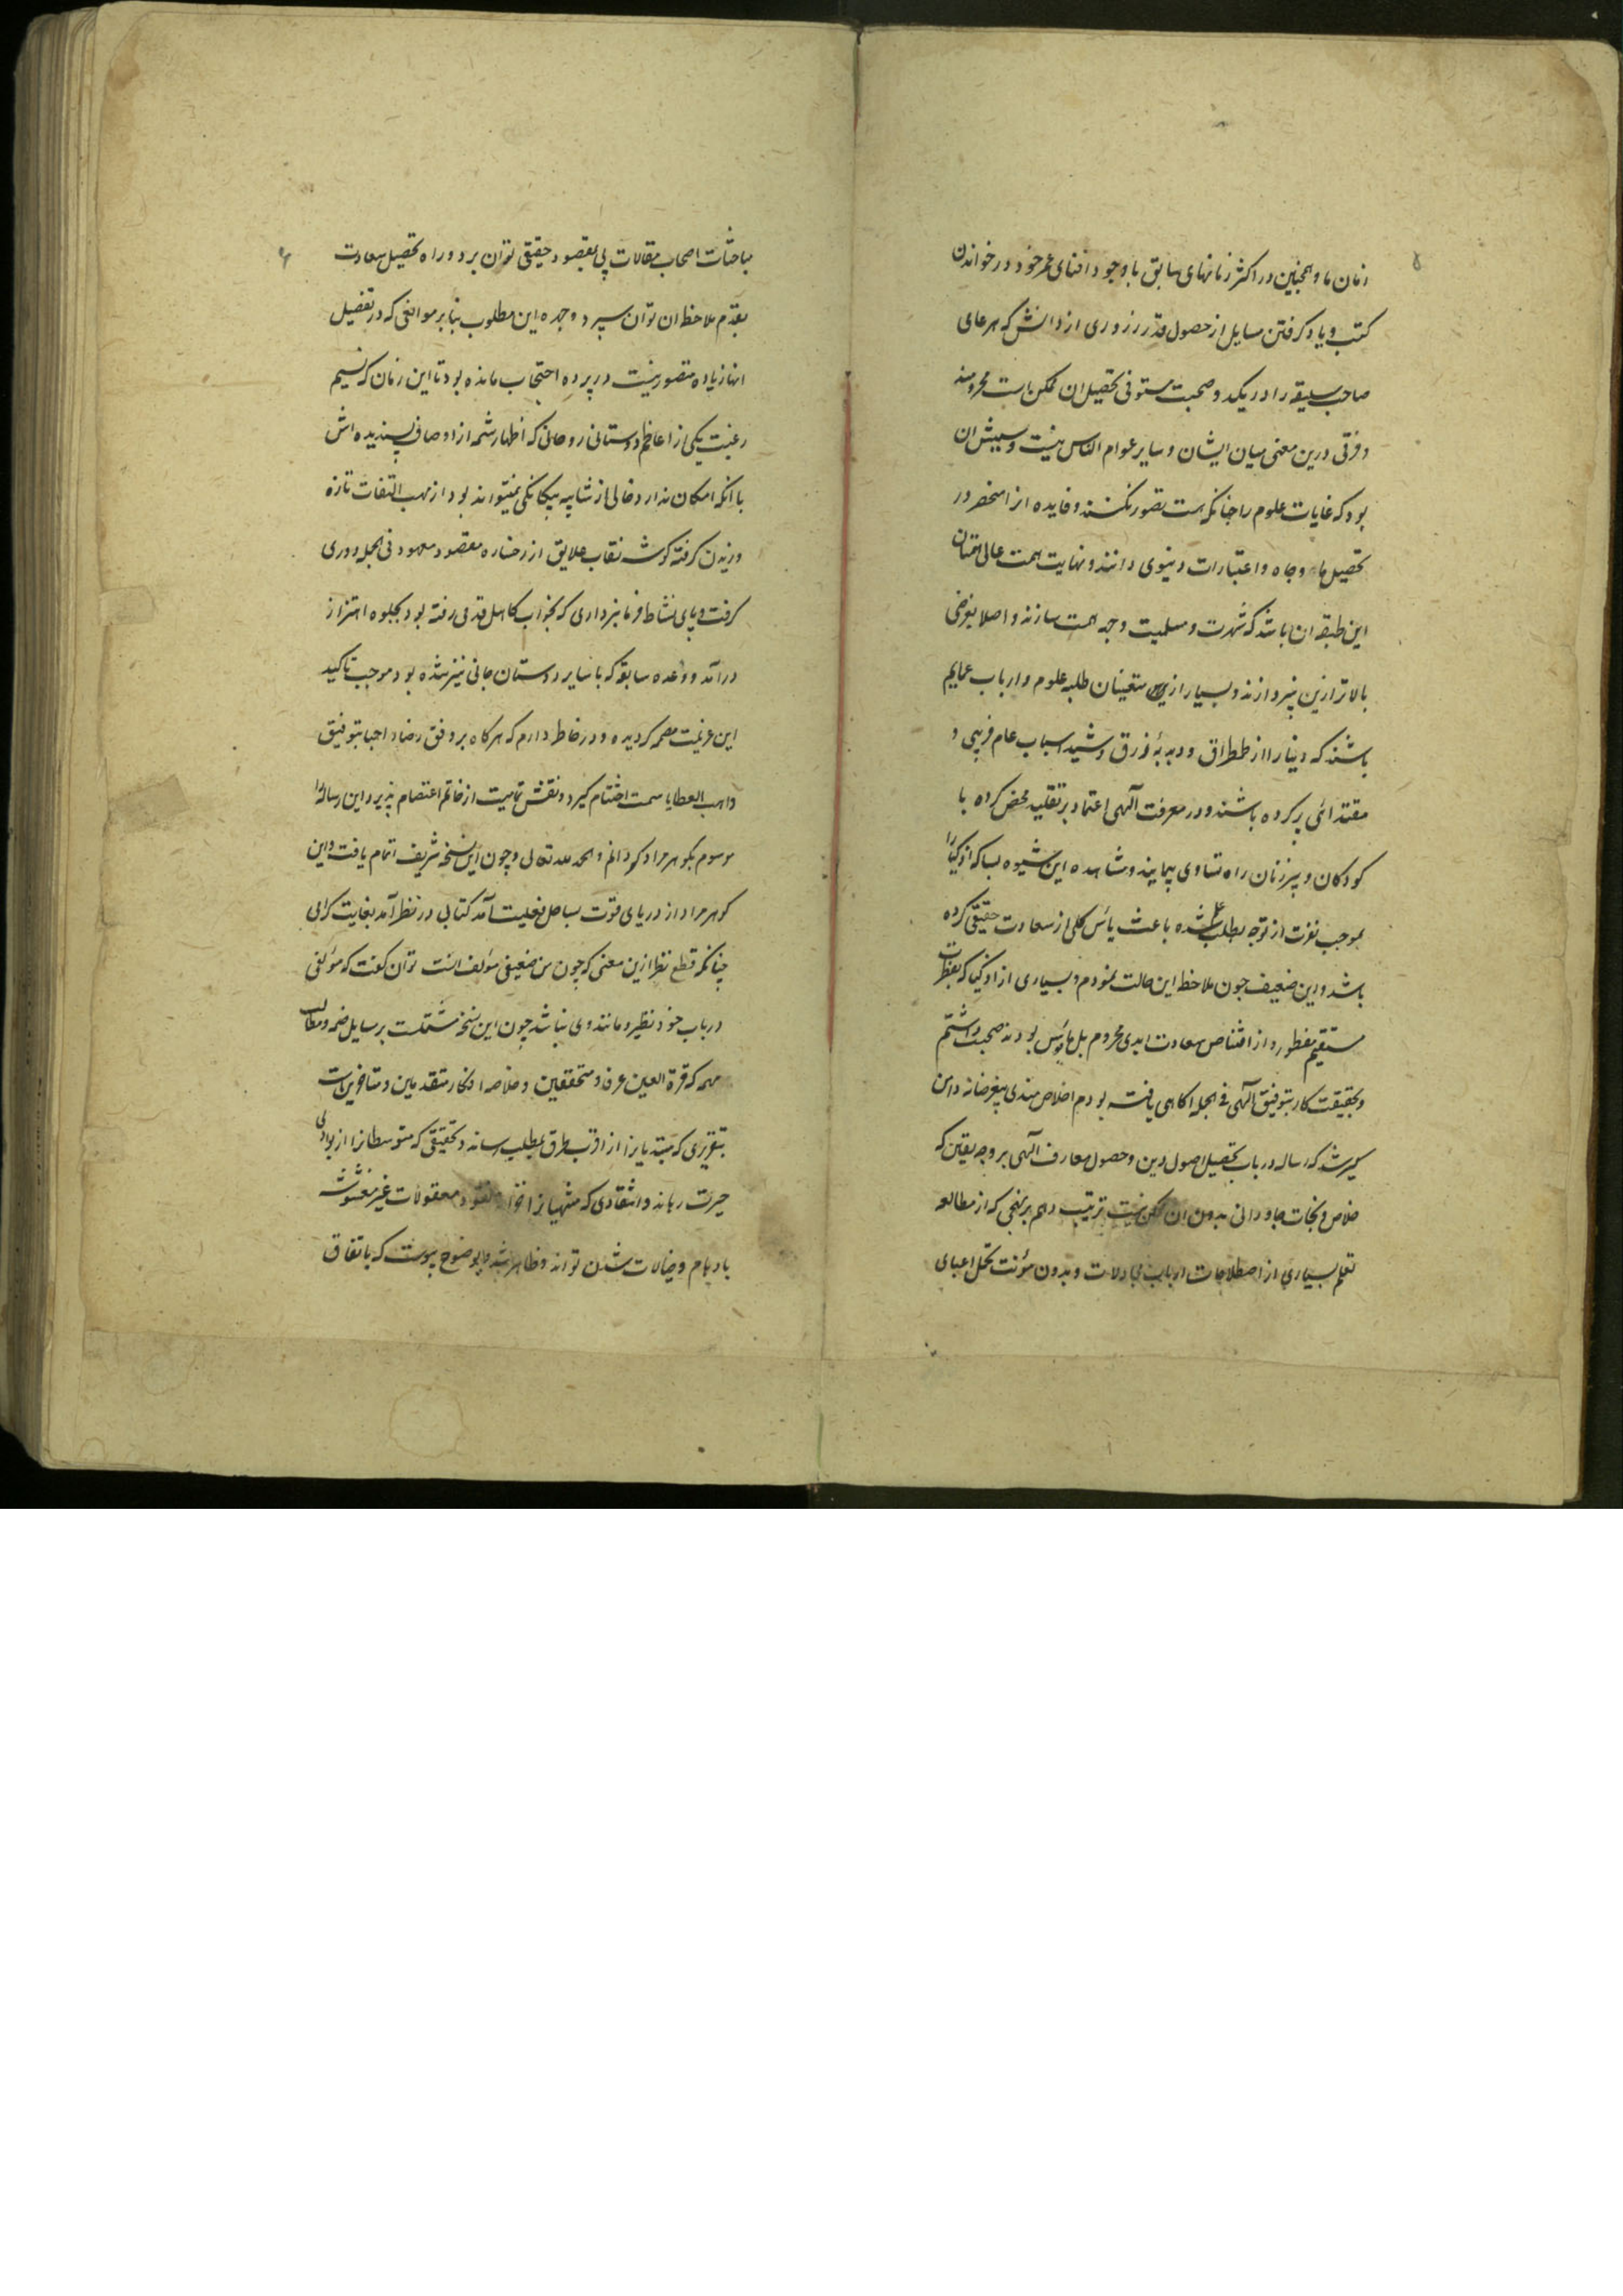 ۵
زمان ما و همچنین در اکثر زمانهای سابق با وجود افنای عمر خود در خواندن
کتب و یاد گرفتن مسایل از حصول قدر رزوری از دانش که هر عامی
صاحب سلیقه را در یکدو صحبت مستوفی تحصیل ان ممکن است محرومند
و فرقی درین معنی میان ایشان و سایر عوام الناس نیست و سببش ان
بود که غایات علوم را چنانکه هست تصور نکنند و فایده انرا منحصر در
تحصیل مال و جاه و اعتبارات دنیوی دانند و نهایت همت عالی همتان
این طبقه ان باشد که شهرت و مسلمیت وجه همت سازند و اصلا بغرضی
بالاتر ازین نپردازند و بسیار ازین متعینان طلبه علوم و ارباب عمایم
باشند که دنیا را از طمطراق و دبدبهٔ زرق و شید اسباب عام فریبی و
مقتدائی پر کرده باشند و در معرفت آلهی اعتماد بر تقلید محض کرده با
کودکان و پیرزنان راه تساوی پیمایند و مشاهده این شیوه بسا که اذکیا را
بموجب نفرت از توجه بطلب علم شده باعث یأس کلی از سعادت حقیقی کرده
باشد و این ضعیف چون ملاحظه این حالت نمودم و بسیاری از اذکیا که بفطرت
مستقیم مفطور و از اقتناص سعادت ابدی محروم بل مأیوس بودند صحبت داشتم
و بحقیقت کار بتوفیق آلهی فی الجمله اکاهی یافته بودم اخلاص مندی بیغرضانه دامن
گیر شد که رساله در باب تحصیل اصول دین و حصول معارف آلهی بر وجه یقین که
خلاص و نجات جاودانی بدون ان ممکن نیست ترتیب دهم بر نهجی که از مطالعه
تعلم بسیاری از اصطلاحات ارباب مجادلات و بدون مؤنت تحمل اعبای
۶
مباحثات اصحاب مقالات پی بمقصود حقیقی توان برد و راه تحصیل سعادت
بقدم ملاحظه ان توان سپرد و چهره این مطلوب بنا بر موانعی که در تفصیل
انها زیاده متصور نیست در پرده احتجاب مانده بود تا این زمان که نسیم
رغبت یکی از اعاظم دوستانی روحانی که اظهار شمه از اوصاف پسندیده اش
با انکه امکان ندارد خالی از شایبه بیکانکی نمیتواند بود از مهب التفات تازه
وزیدن کرفته کوشه نقاب علایق از رخساره مقصود معهود فی الجمله دوری
کرفت و پای نشاط فرمانبرداری که بخواب کاهل قدمی رفته بود بجلوه اهتزاز
درآمد و وعده سابقه که با سایر دوستان جانی نیز شده بود موجب تاکید
این عزیمت مصمم کردیده و در خاطر دارم که هرکاه بر وفق رضاء احبا بتوفیق
واهب العطایا سمت اختتام کیرد و نقش تمامیت از خاتم اعتصام پذیرد این رساله را
موسوم بگوهر مراد گردانم و الحمد لله تعالی و چون این نسخه شریف اتمام یافت و این
کوهر مراد از دریای قوت بساحل فعلیت آمد کتابی در نظر آمد بغایت کرامی
چنانکه قطع نظر ازین معنی که چون من ضعیفی مؤلف انست توان کفت که مؤلفی
در باب خود نظیر و مانند وی نباشد چون این نسخه مشتملست بر مسایل ضمه و مطالب
مهمه که قرة العین عرفا و متحققین و خلاصه افکار متقدمین و متاخرین است
بتقریری که مبتدیانرا از اقرب طرق بمطلب رساند و تحقیقی که متوسطانرا از بوادی
حیرت رهاند و انتقادی که منتهیانرا نقود معقولات غیر مغشوشه
باوهام و خیالات شدن تواند و ظاهر شد و بوضوح پیوست که باتفاق